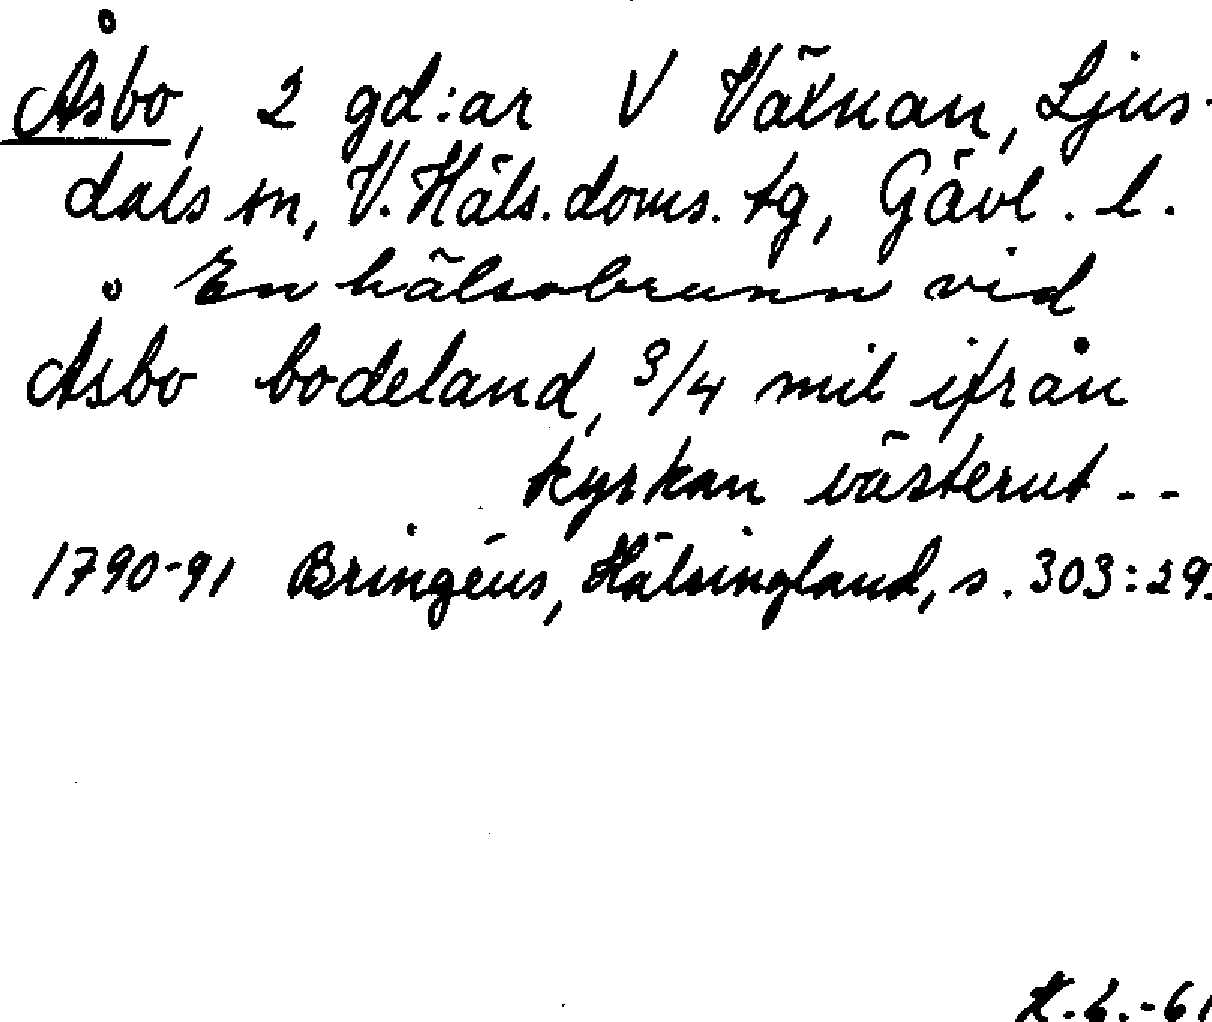 Åsbo, 2 gd:ar V Växnan, Ljus-
dals sn, V. Häls. doms. tg, Gävl. l.
En hälsobrunn vid
Åsbo bodeland, 3/4 mil ifrån
kyrkan västerut - -
1790-91 Bringéus, Hälsingland, s. 303:29.
H.L.-61